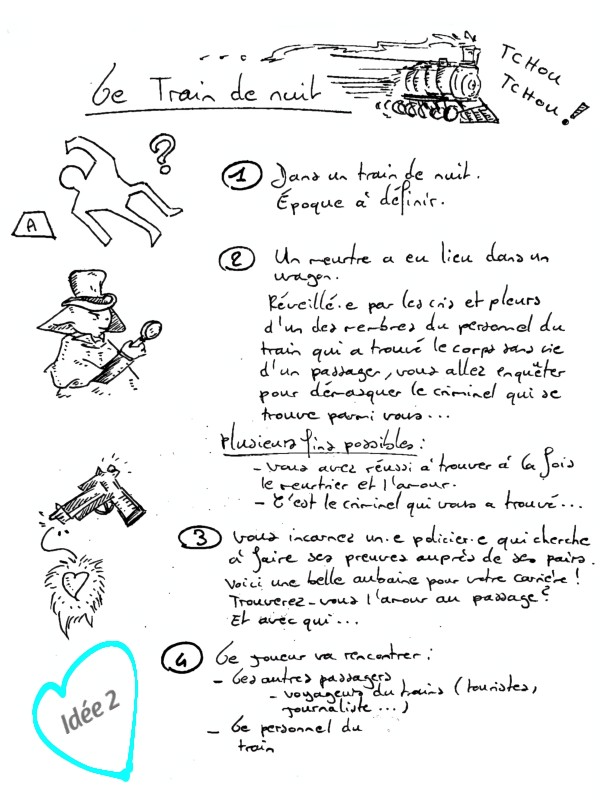 Le Train de nuit
TCHOU
TCHOU!
?
A
1 Dans un train de nuit.
Époque à définir.
2 Un meurtre a eu lieu dans un
wagon.
Réveillé·e par les cris et pleurs
d'un des membres du personnel du
train qui a trouvé le corps sans vie
d'un passager, vous allez enquêter
pour démasquer le criminel qui se
trouve parmi vous...
Plusieurs fins possibles :
- Vous avez réussi à trouver à la fois
le meurtrier et l'amour.
- C'est le criminel qui vous a trouvé...
3 Vous incarnez un·e policier·e qui cherche
à faire ses preuves auprès de ses pairs.
Voici une belle aubaine pour votre carrière !
Trouverez-vous l'amour au passage ?
Et avec qui...
4 Le joueur va rencontrer :
- Les autres passagers
- voyageurs du trains (touristes,
journaliste ...)
- Le personnel du
train
Idée 2